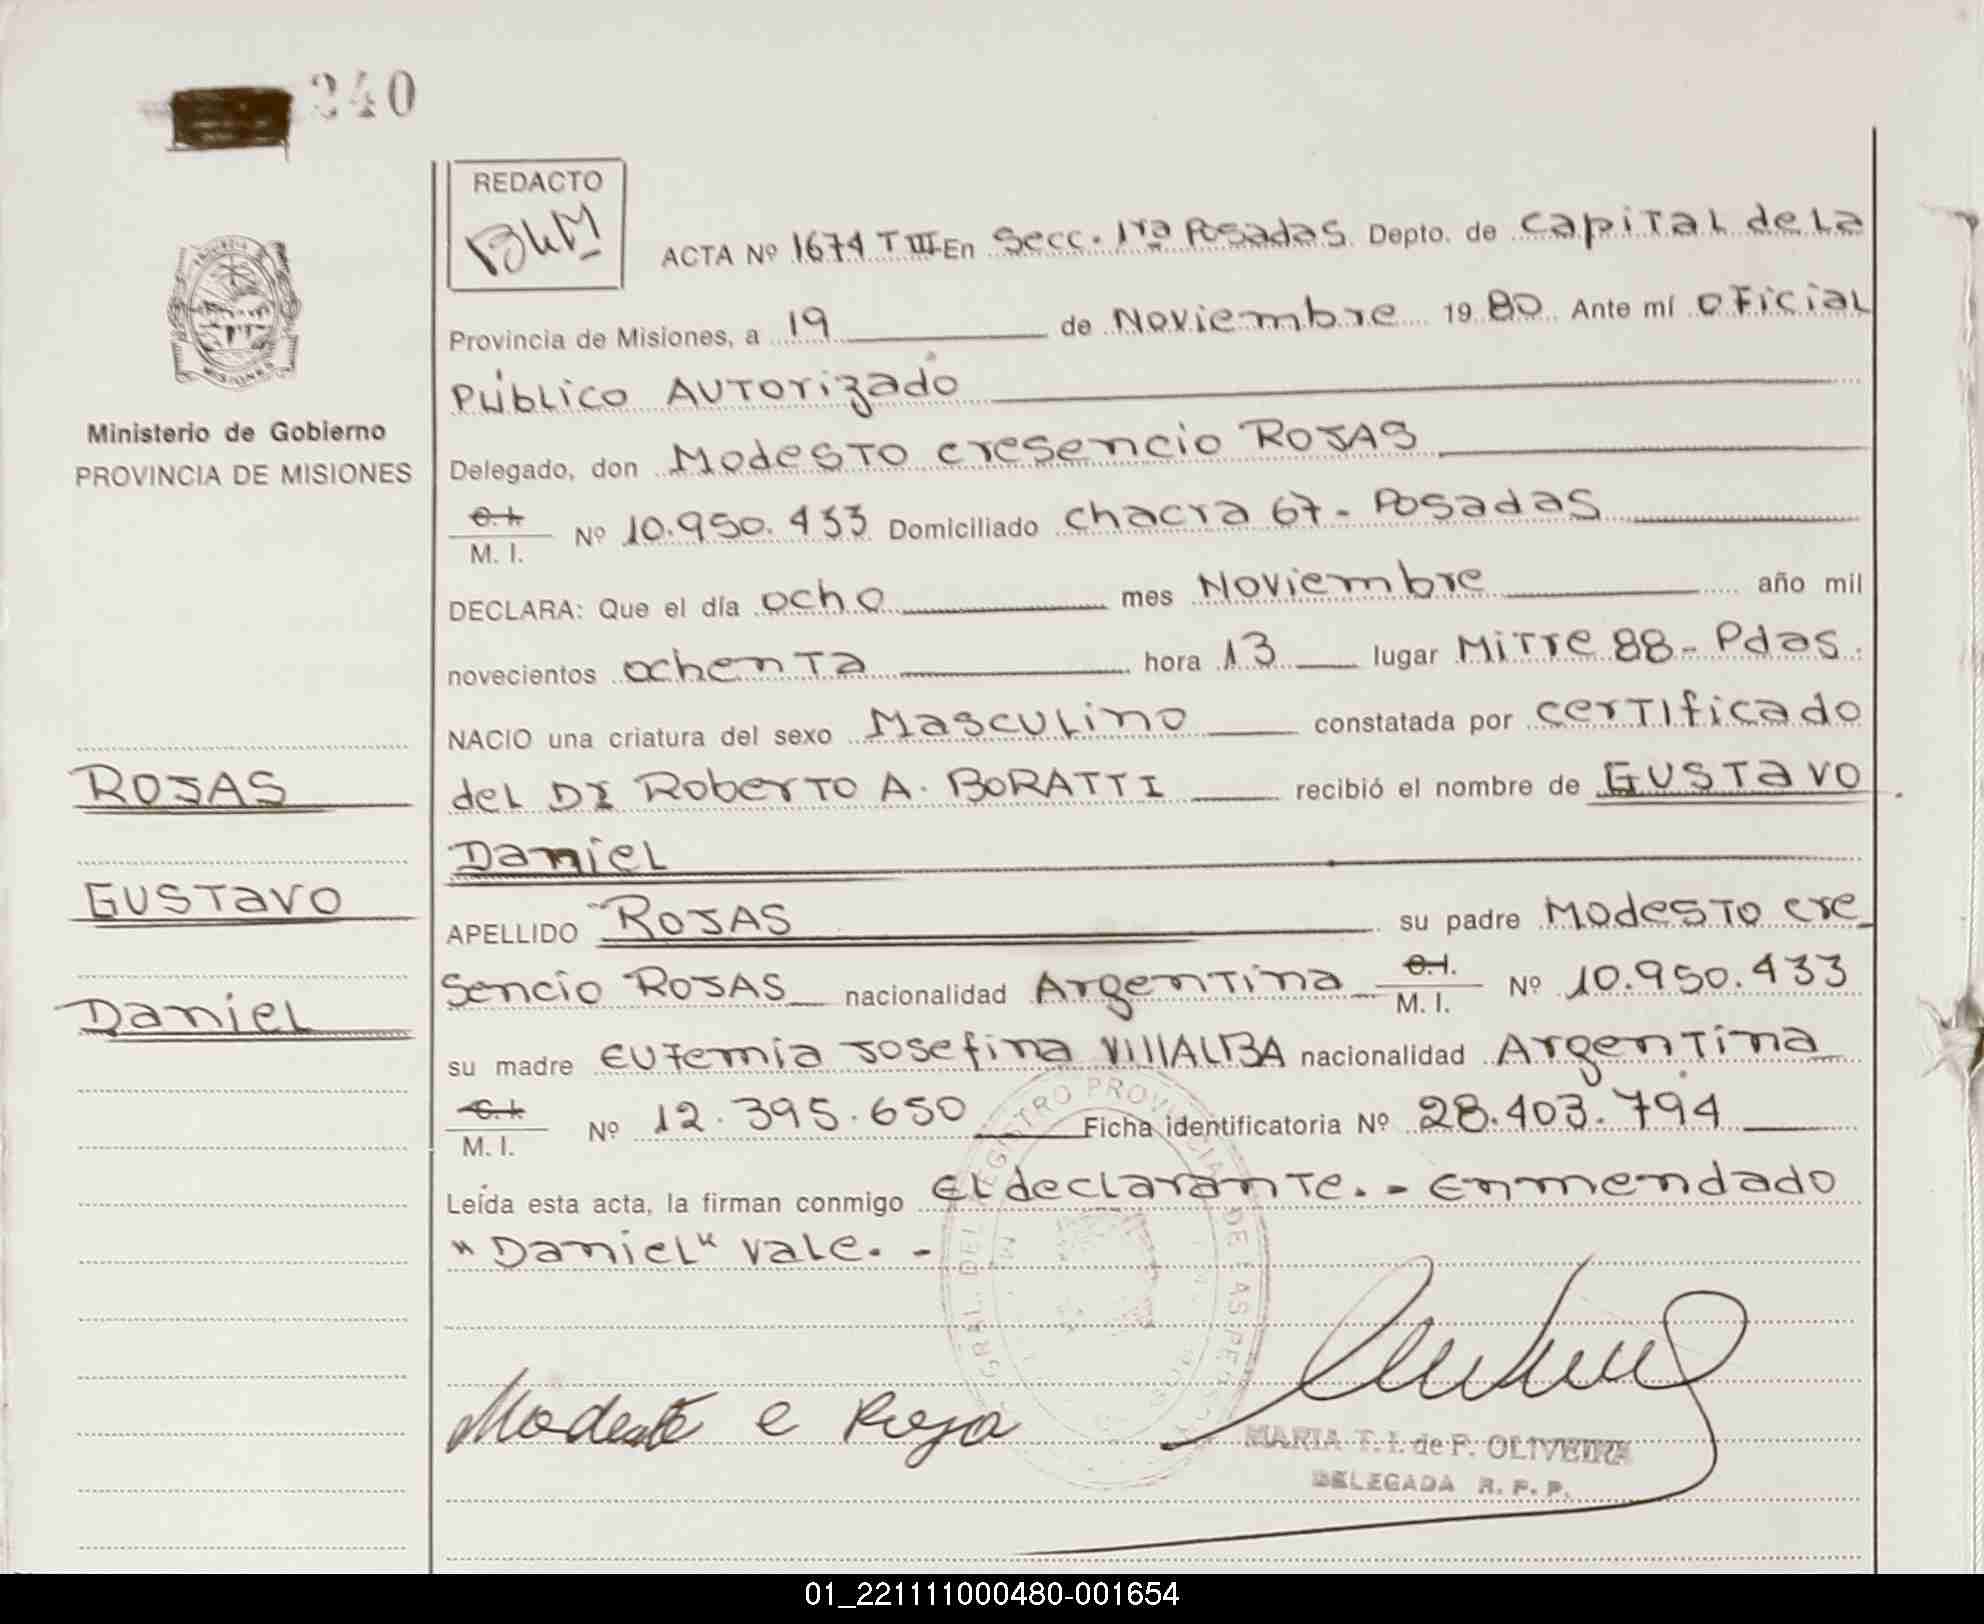 240
REDACTO
ACTA Nº 1674 T III En Secc. 1ra Posadas. Depto. de Capital de La
Provincia de Misiones, a 19 de Noviembre 1980. Ante mí oficial
Público Autorizado
Ministerio de Gobierno
PROVINCIA DE MISIONES
MISIONES
Delegado, don Modesto cresencio ROJAS
C.I.
M. I. Nº 10.950.433 Domiciliado chacra 67 - Posadas
DECLARA: Que el día ocho mes Noviembre año mil
novecientos ochenta hora 13 lugar Mitre 88 - Pdas.
NACIO una criatura del sexo Masculino constatada por certificado
del Dr Roberto A. BORATTI recibió el nombre de GUSTavo
Daniel
APELLIDO ROJAS su padre Modesto cre
sencio ROJAS nacionalidad Argentina C.I. M. I. Nº 10.950.433
su madre Eufemia Josefina VIllALBA nacionalidad Argentina
C.I.
M. I. Nº 12.395.650 Ficha identificatoria Nº 28.403.794
Leída esta acta, la firman conmigo El declarante. - Enmendado
"Daniel" vale. -
ROJAS
GUSTavo
Daniel
GRAL. DEL REGISTRO PROVINCIAL DE LAS PERSONAS
Modesto c Roja
MARIA T. I. de P. OLIVEIRA
DELEGADA R. P. P.
01_221111000480-001654